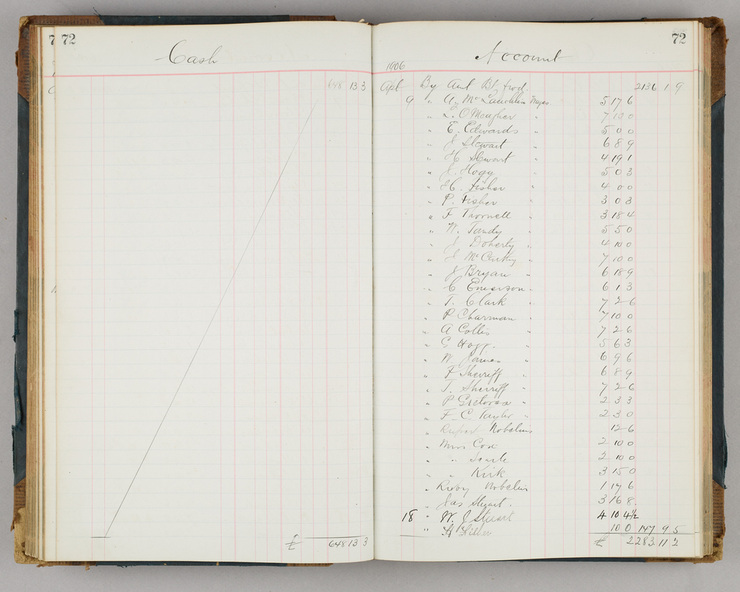 7 72
Cash
648 13 3
£ 648 13 3
72
1906 Account
Apl By Amt Bt. frod 2136 1 9
9 " A. McLauchlan Wages 5 17 6
" L. O'Meagher " 7 10 0
" E. Edwards " 5 0 0
" J Stewart " 6 8 9
" H. Stewart " 4 19 1
" J. Hogg " 5 0 3
" H. Fisher " 4 0 0
" P. Fisher " 3 0 3
" F. " 3 18 4
" N. Tundy " 5 5 0
" J Doherty " 4 10 0
" J McCarthy " 7 10 0
" J Bryan " 6 18 9
" C Emerson " 6 1 3
" T. Clark " 7 2 6
" P. Charman " 7 10 0
" A Colles " 7 2 6
" C Hogg " 5 6 3
" W. James " 6 9 6
" F Sherriff " 6 8 9
" T. Sherriff " 7 2 6
" P " 2 3 3
" F. C. " 2 3 0
" Nobelius 12 6
" Miss Cox 2 10 0
" " 2 10 0
" " Kirk 3 15 0
" Nobelius 1 17 6
" Jas Stewart 3 16 8
18 " W. J 4 10 4½
" 10 0 147 9 5
£ 2283 11 2